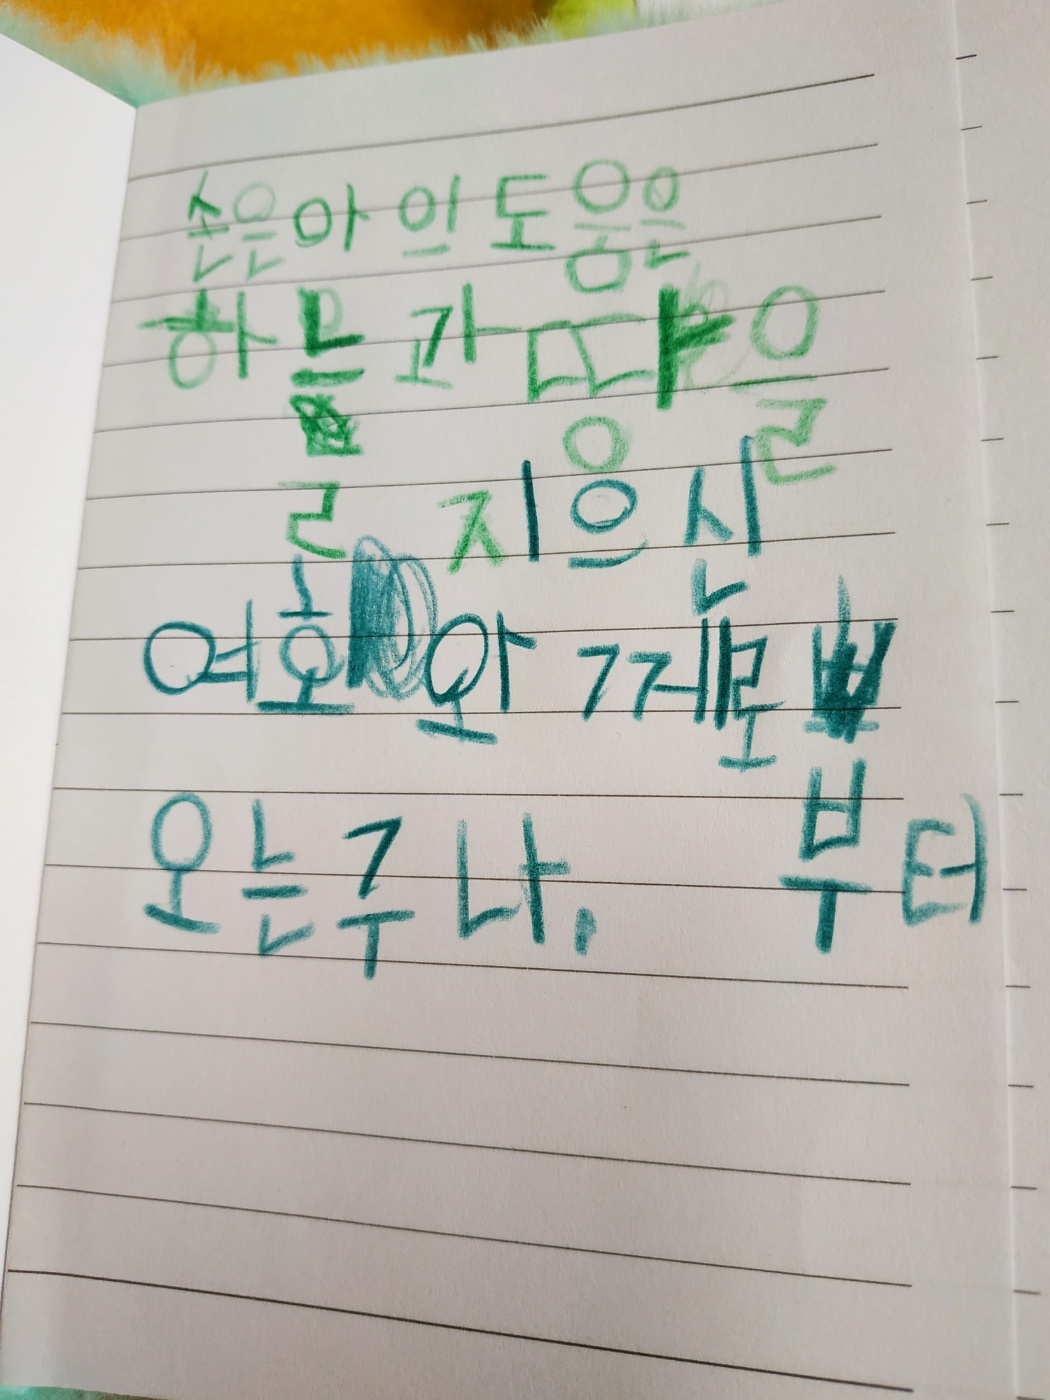 손은아의도움은
하늘과땅을
지으신
여호와께로
오는주나. 부터